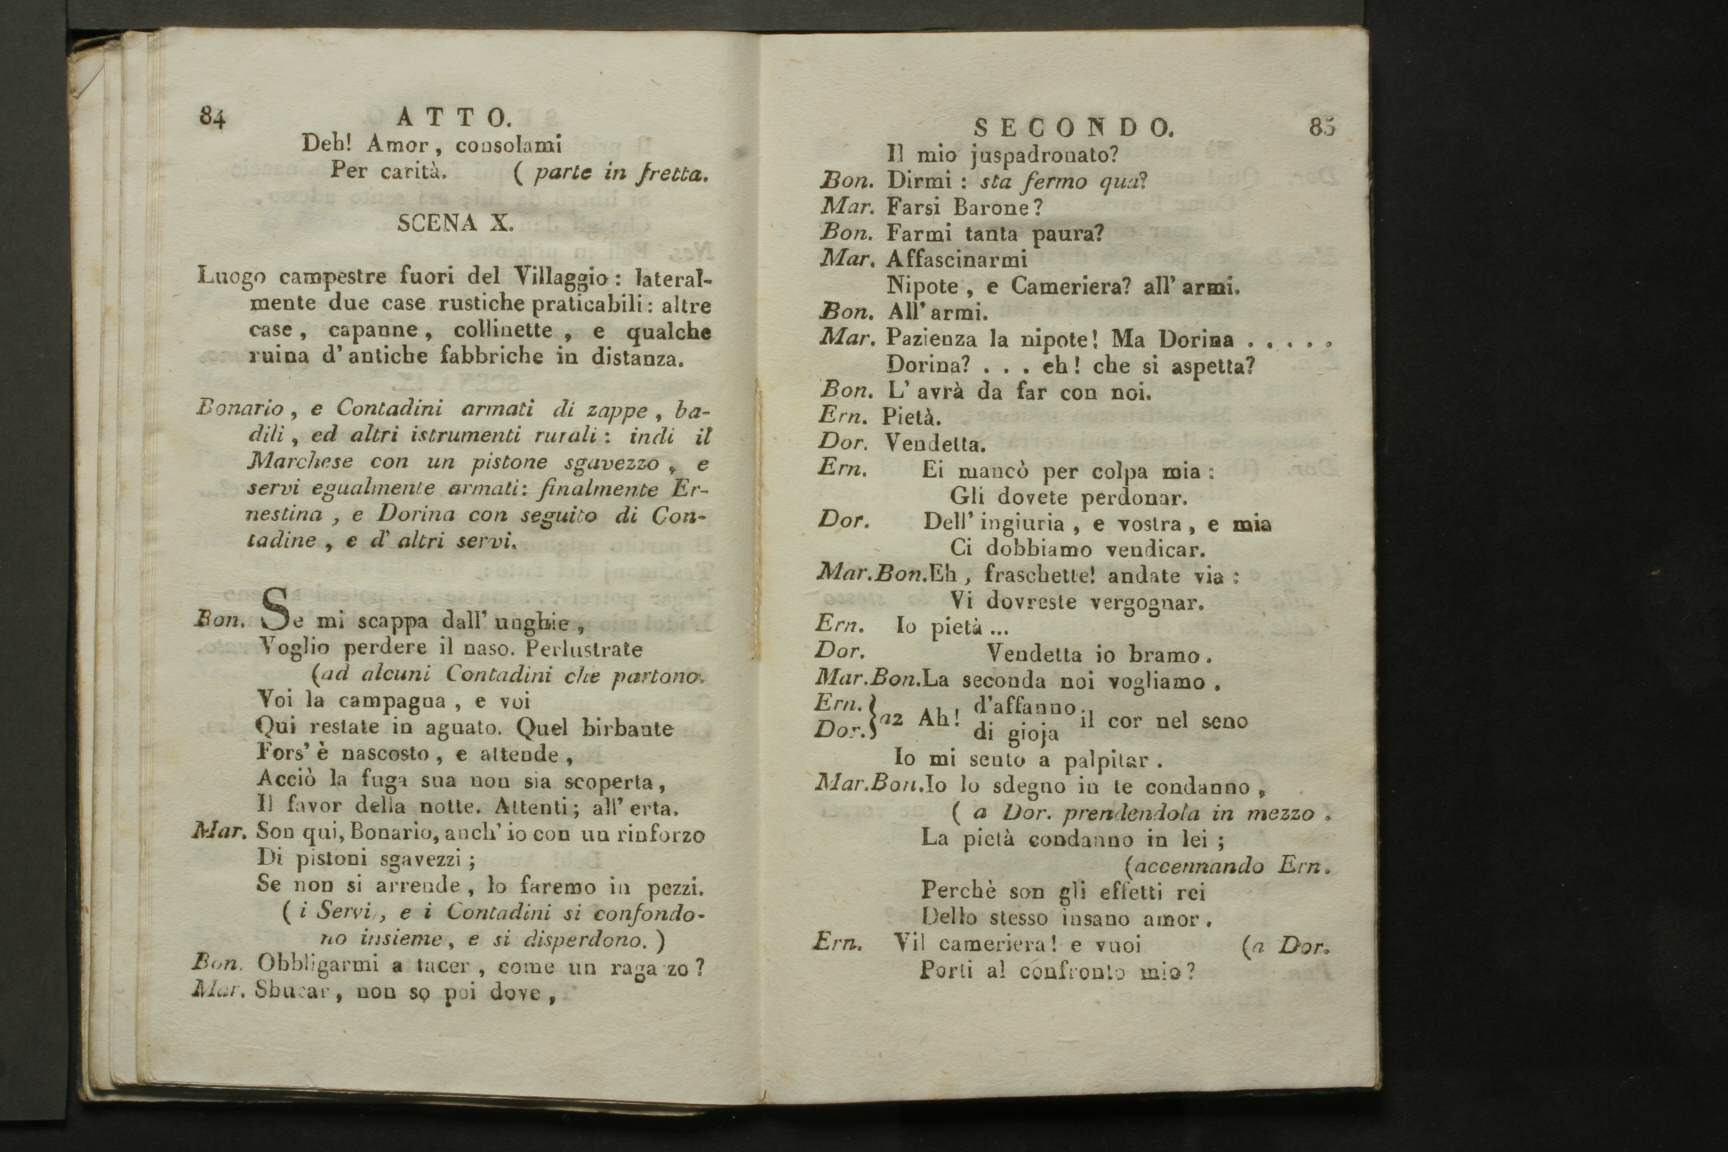 84
ATTO.
Deh! Amor, consolami
Per carità. ( parte in fretta.
SCENA X.
Luogo campestre fuori del Villaggio: lateral-
mente due case rustiche praticabili: altre
case, capanne, collinette, e qualche
ruina d' antiche fabbriche in distanza.
Bonario, e Contadini armati di zappe, ba-
dili, ed altri istrumenti rurali: indi il
Marchese con un pistone sgavezzo, e
servi egualmente armati: finalmente Er-
nestina, e Dorina con seguito di Con-
tadine, e d' altri servi.
Bon. Se mi scappa dall' unghie,
Voglio perdere il naso. Perlustrate
(ad alcuni Contadini che partono.
Voi la campagna, e voi
Qui restate in aguato. Quel birbante
Fors' è nascosto, e attende,
Acciò la fuga sua non sia scoperta,
Il favor della notte. Attenti; all' erta.
Mar. Son qui, Bonario, anch' io con un rinforzo
Di pistoni sgavezzi;
Se non si arrende, lo faremo in pezzi.
( i Servi, e i Contadini si confondo-
no insieme, e si disperdono. )
Bon. Obbligarmi a tacer, come un raga zo?
Mar. Sbucar, non so poi dove,
SECONDO.
85
Il mio juspadronato?
Bon. Dirmi: sta fermo qua?
Mar. Farsi Barone?
Bon. Farmi tanta paura?
Mar. Affascinarmi
Nipote, e Cameriera? all' armi.
Bon. All' armi.
Mar. Pazienza la nipote! Ma Dorina . . . . .
Dorina? . . . eh! che si aspetta?
Bon. L' avrà da far con noi.
Ern. Pietà.
Dor. Vendetta.
Ern. Ei mancò per colpa mia:
Gli dovete perdonar.
Dor. Dell' ingiuria, e vostra, e mia
Ci dobbiamo vendicar.
Mar.Bon. Eh, fraschette! andate via:
Vi dovreste vergognar.
Ern. Io pietà ...
Dor. Vendetta io bramo.
Mar.Bon. La seconda noi vogliamo.
Ern. } a2 Ah! d'affanno il cor nel seno
Dor. } di gioja
Io mi sento a palpitar.
Mar.Bon. Io lo sdegno in te condanno,
( a Dor. prendendola in mezzo.
La pietà condanno in lei;
(accennando Ern.
Perchè son gli effetti rei
Dello stesso insano amor.
Ern. Vil cameriera! e vuoi (a Dor.
Porti al confronto mio?